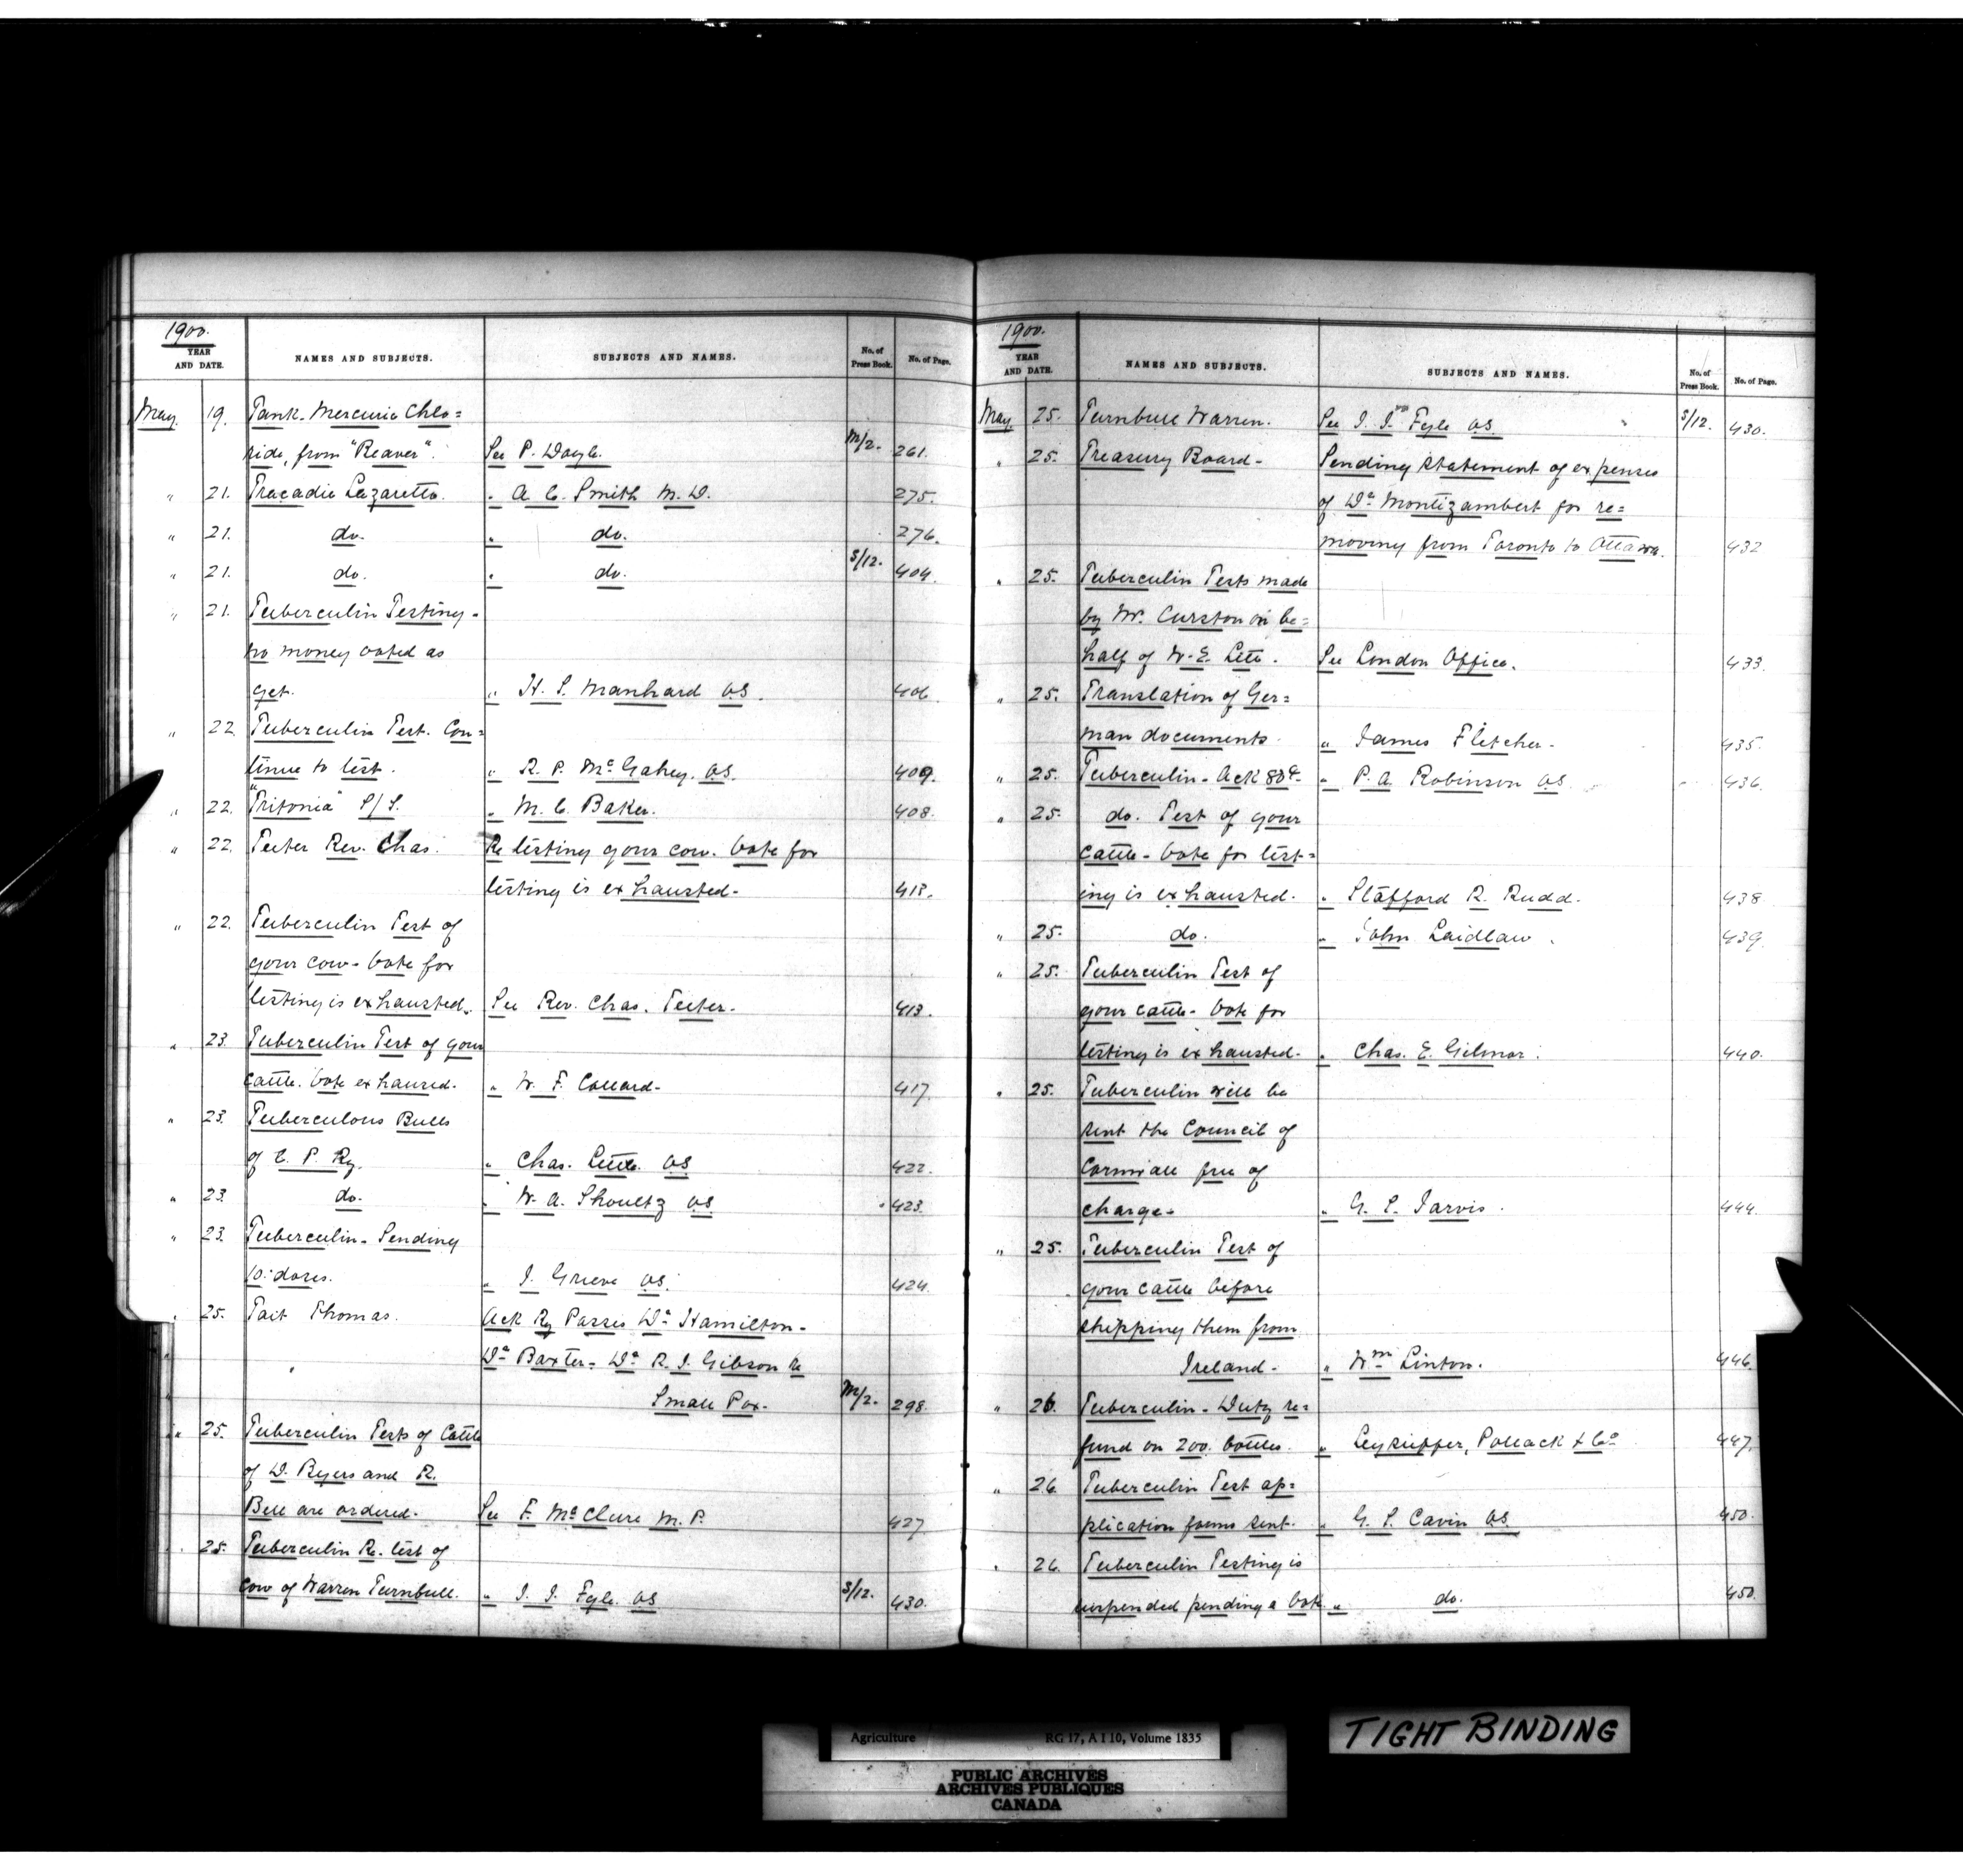 1900.
YEAR AND DATE. NAMES AND SUBJECTS. SUBJECTS AND NAMES. No. of Press Book. No. of Page.
May. 19. Tank. Mercuric Chlo=
ride, from "Reaver". See P. Doyle. M/2. 261.
" 21. Tracadie Lazaretto. " A. C. Smith M. D. 275.
" 21. do. " do. 276.
" 21. do. " do. S/12. 404.
" 21. Tuberculin Testing -
no money voted as
yet. " H. S. Manhard VS. 406.
" 22. Tuberculin Test. Con=
tinue to test. " R. P. McGahey. VS. 409.
" 22. "Tritonia" S/S. " M. C. Baker. 408.
" 22. Teeter Rev. Chas. Re testing your cow. Vote for
testing is exhausted - 413.
" 22. Tuberculin Test of
your cow - Vote for
testing is exhausted. See Rev. Chas. Teeter - 413.
" 23. Tuberculin Test of your
cattle. Vote exhaused. " W. F. Collard - 417.
" 23. Tuberculous Bulls
of C. P. Ry. " Chas. Little. VS 422.
" 23. do. " W. A. Shoultz VS 423.
" 23. Tuberculin - Sending
10. doses. " J. Grieve VS. 424.
" 25. Tait Thomas. Ack Ry Passes Dr Hamilton -
" Dr Baxter - Dr R. J. Gibson re
Small Pox. M/2. 298.
" 25. Tuberculin Tests of Cattle
of D. Ryers and R.
Bell are ordered. See F. McClure M. P. 427
" 25. Tuberculin Re. test of
cow of Warren Turnbull. " J. J. Fyle. VS S/12. 430.
1900.
YEAR AND DATE. NAMES AND SUBJECTS. SUBJECTS AND NAMES. No. of Press Book. No. of Page.
May 25. Turnbull Warren. See J. J. Fyle VS. S/12. 430.
" 25. Treasury Board - Sending statement of expenses
of Dr Montizambert for re=
moving from Toronto to Ottawa. 432
" 25. Tuberculin Tests made
by Mr. Curston on be=
half of W. E. See London Office. 433.
" 25. Translation of Ger=
man documents. " James Fletcher - 435.
" 25. Tuberculin - Ack " P. A. Robinson VS. 436.
" 25. do. Test of your
cattle - Vote for test=
ing is exhausted. " Stafford R. Rudd. 438
" 25. do. " John Laidlaw. 439.
" 25. Tuberculin Test of
your cattle - Vote for
testing is exhausted - " Chas. E. Gilmor. 440.
" 25. Tuberculin will be
sent the Council of
Cornwall free of
charge - " G. S. Jarvis. 444.
" 25. Tuberculin Test of
your cattle before
shipping them from
Ireland - " Wm Linton. 446.
" 26. Tuberculin - Duty re=
fund on 200. bottles. " Pollack & Co 447.
" 26. Tuberculin Test ap=
plication forms sent. " G. S. Cavin VS. 450.
" 26. Tuberculin Testing is
suspended pending a Vote " do. 450.
Agriculture RG 17, A I 10, Volume 1835
PUBLIC ARCHIVES
ARCHIVES PUBLIQUES
CANADA
TIGHT BINDING